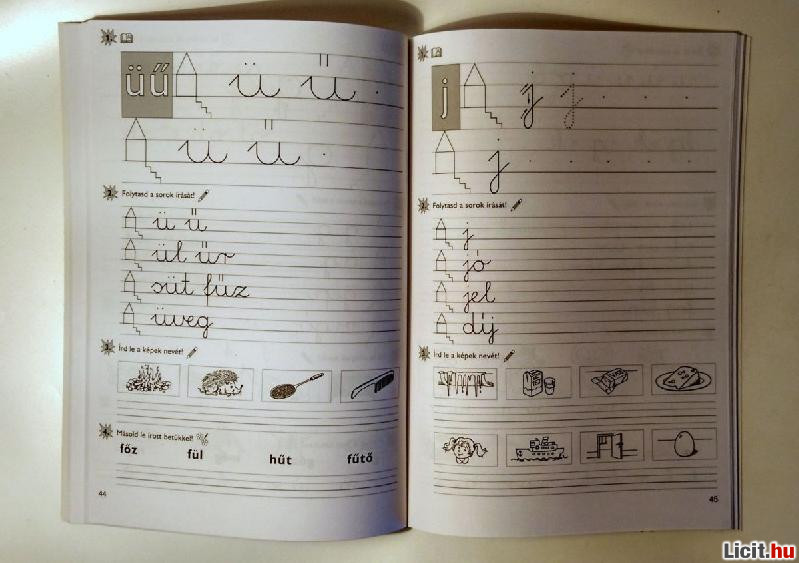 1.
üű ü ű
ü ű
2. Folytasd a sorok írását!
ü ű
ül űr
süt fűz
üveg
3. Írd le a képek nevét!
4. Másold le írott betűkkel!
főz fül hűt fűtő
44
j j j
j
2. Folytasd a sorok írását!
j
jó
jel
díj
Írd le a képek nevét!
45
Licit.hu